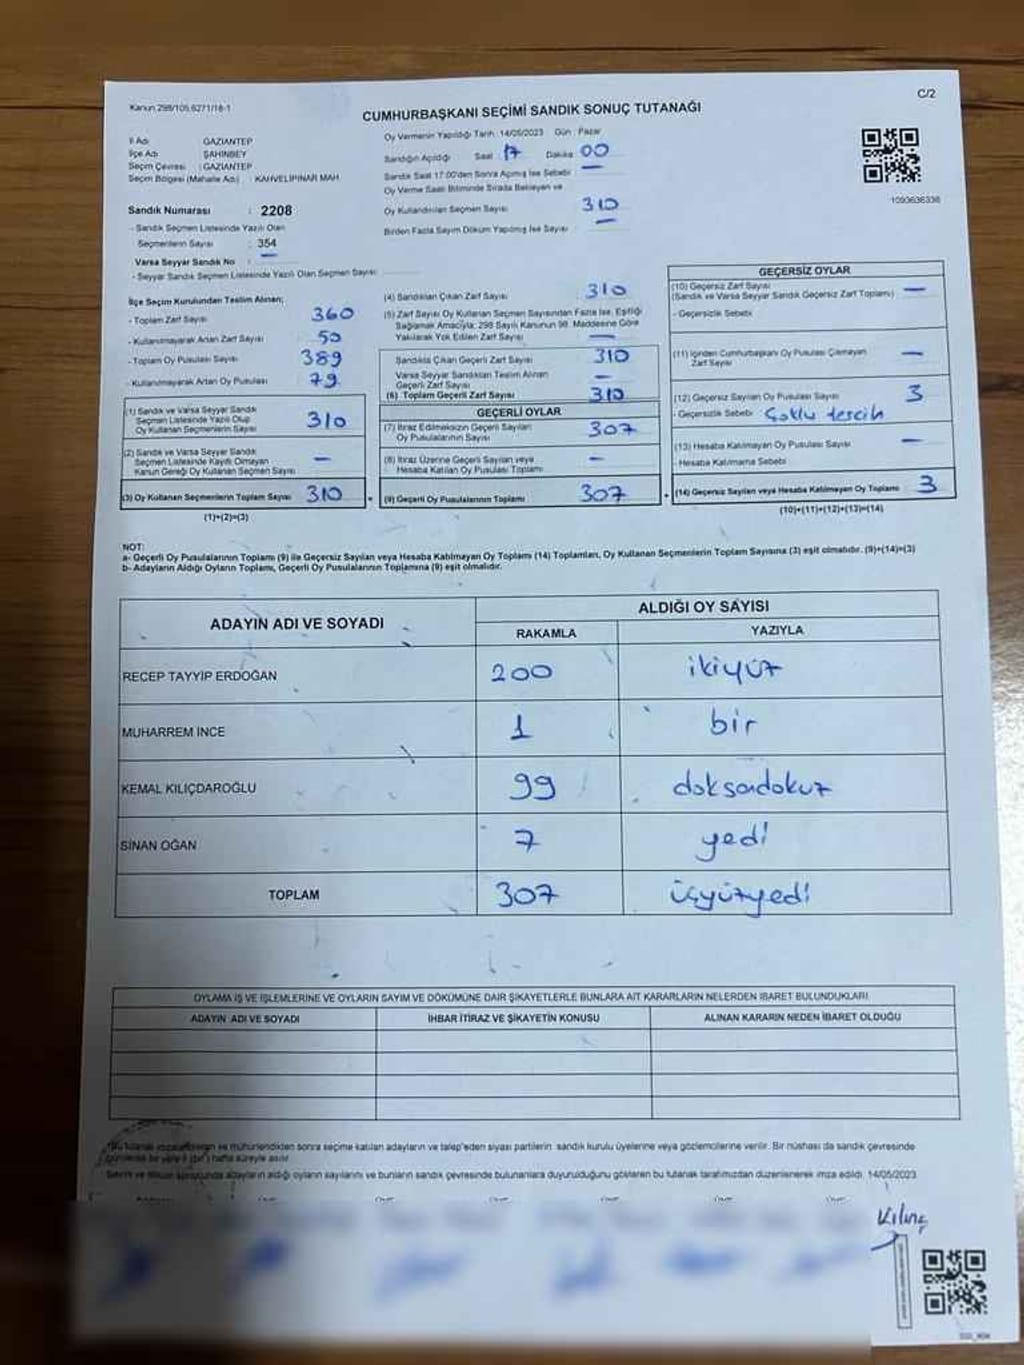 Kanun 298/105,6271/16-1
C/2
CUMHURBAŞKANI SEÇİMİ SANDIK SONUÇ TUTANAĞI
İl Adı : GAZİANTEP
İlçe Adı : ŞAHİNBEY
Seçim Çevresi : GAZİANTEP
Seçim Bölgesi (Mahalle Adı) : KAHVELİPINAR MAH.
Sandık Numarası : 2208
- Sandık Seçmen Listesinde Yazılı Olan
Seçmenlerin Sayısı : 354
Varsa Seyyar Sandık No : —
- Seyyar Sandık Seçmen Listesinde Yazılı Olan Seçmen Sayısı:
Oy Vermenin Yapıldığı Tarih: 14/05/2023 Gün : Pazar
Sandığın Açıldığı Saat : 17 Dakika 00
Sandık Saat 17:00'den Sonra Açılmış İse Sebebi : —
Oy Verme Saati Bitiminde Sırada Bekleyen ve
Oy Kullandırılan Seçmen Sayısı : 310
Birden Fazla Sayım Döküm Yapılmış İse Sayısı : —
1093636336
İlçe Seçim Kurulundan Teslim Alınan;
- Toplam Zarf Sayısı : 360
- Kullanılmayarak Artan Zarf Sayısı : 50
- Toplam Oy Pusulası Sayısı : 389
- Kullanılmayarak Artan Oy Pusulası : 79
(1) Sandık ve Varsa Seyyar Sandık
Seçmen Listesinde Yazılı Olup
Oy Kullanan Seçmenlerin Sayısı : 310
(2) Sandık ve Varsa Seyyar Sandık
Seçmen Listesinde Kayıtlı Olmayan
Kanun Gereği Oy Kullanan Seçmen Sayısı : —
(3) Oy Kullanan Seçmenlerin Toplam Sayısı : 310
(1)+(2)=(3)
(4) Sandıktan Çıkan Zarf Sayısı : 310
(5) Zarf Sayısı Oy Kullanan Seçmen Sayısından Fazla İse, Eşitliği
Sağlamak Amacıyla; 298 Sayılı Kanunun 98. Maddesine Göre
Yakılarak Yok Edilen Zarf Sayısı : —
Sandıkta Çıkan Geçerli Zarf Sayısı : 310
Varsa Seyyar Sandıktan Teslim Alınan
Geçerli Zarf Sayısı : —
(6) Toplam Geçerli Zarf Sayısı : 310
GEÇERLİ OYLAR
(7) İtiraz Edilmeksizin Geçerli Sayılan
Oy Pusulalarının Sayısı : 307
(8) İtiraz Üzerine Geçerli Sayılan veya
Hesaba Katılan Oy Pusulası Toplamı : —
(9) Geçerli Oy Pusulalarının Toplamı : 307
GEÇERSİZ OYLAR
(10) Geçersiz Zarf Sayısı : —
(Sandık ve Varsa Seyyar Sandık Geçersiz Zarf Toplamı)
- Geçersizlik Sebebi :
(11) İçinden Cumhurbaşkanı Oy Pusulası Çıkmayan
Zarf Sayısı : —
(12) Geçersiz Sayılan Oy Pusulası Sayısı : 3
- Geçersizlik Sebebi : Çoklu tercih
(13) Hesaba Katılmayan Oy Pusulası Sayısı : —
- Hesaba Katılmama Sebebi :
(14) Geçersiz Sayılan veya Hesaba Katılmayan Oy Toplamı : 3
(10)+(11)+(12)+(13)=(14)
NOT:
a- Geçerli Oy Pusulalarının Toplamı (9) ile Geçersiz Sayılan veya Hesaba Katılmayan Oy Toplamı (14) Toplamları, Oy Kullanan Seçmenlerin Toplam Sayısına (3) eşit olmalıdır. (9)+(14)=(3)
b- Adayların Aldığı Oyların Toplamı, Geçerli Oy Pusulalarının Toplamına (9) eşit olmalıdır.
ADAYIN ADI VE SOYADI
ALDIĞI OY SAYISI
RAKAMLA YAZIYLA
RECEP TAYYİP ERDOĞAN 200 ikiyüz
MUHARREM İNCE 1 bir
KEMAL KILIÇDAROĞLU 99 doksandokuz
SİNAN OĞAN 7 yedi
TOPLAM 307 üçyüzyedi
OYLAMA İŞ VE İŞLEMLERİNE VE OYLARIN SAYIM VE DÖKÜMÜNE DAİR ŞİKAYETLERLE BUNLARA AİT KARARLARIN NELERDEN İBARET BULUNDUKLARI
ADAYIN ADI VE SOYADI İHBAR İTİRAZ VE ŞİKAYETİN KONUSU ALINAN KARARIN NEDEN İBARET OLDUĞU
imzalandıktan ve mühürlendikten sonra seçime katılan adayların ve talep eden siyasi partilerin sandık kurulu üyelerine veya gözlemcilerine verilir. Bir nüshası da sandık çevresinde
bir yere 1 (bir) hafta süreyle asılır.
Sayım ve döküm sonucunda adayların aldığı oyların sayılarını ve bunların sandık çevresinde bulunanlara duyurulduğunu gösteren bu tutanak tarafımızdan düzenlenerek imza edildi. 14/05/2023
Kılınç